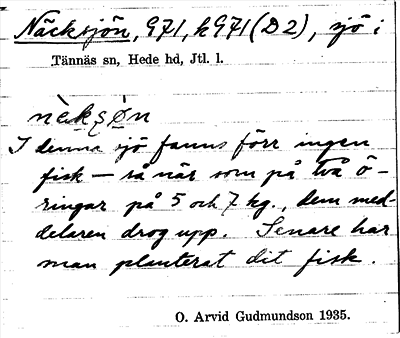 Näcksjön, 971, k971 (D2), sjö i
Tännäs sn, Hede hd, Jtl. l.
nèkşø̀n
I denna sjö fanns förr ingen
fisk – så när som på två ö-
ringar på 5 och 7 kg., dem med-
delaren drog upp. Senare har
man planterat dit fisk.
O. Arvid Gudmundson 1935.